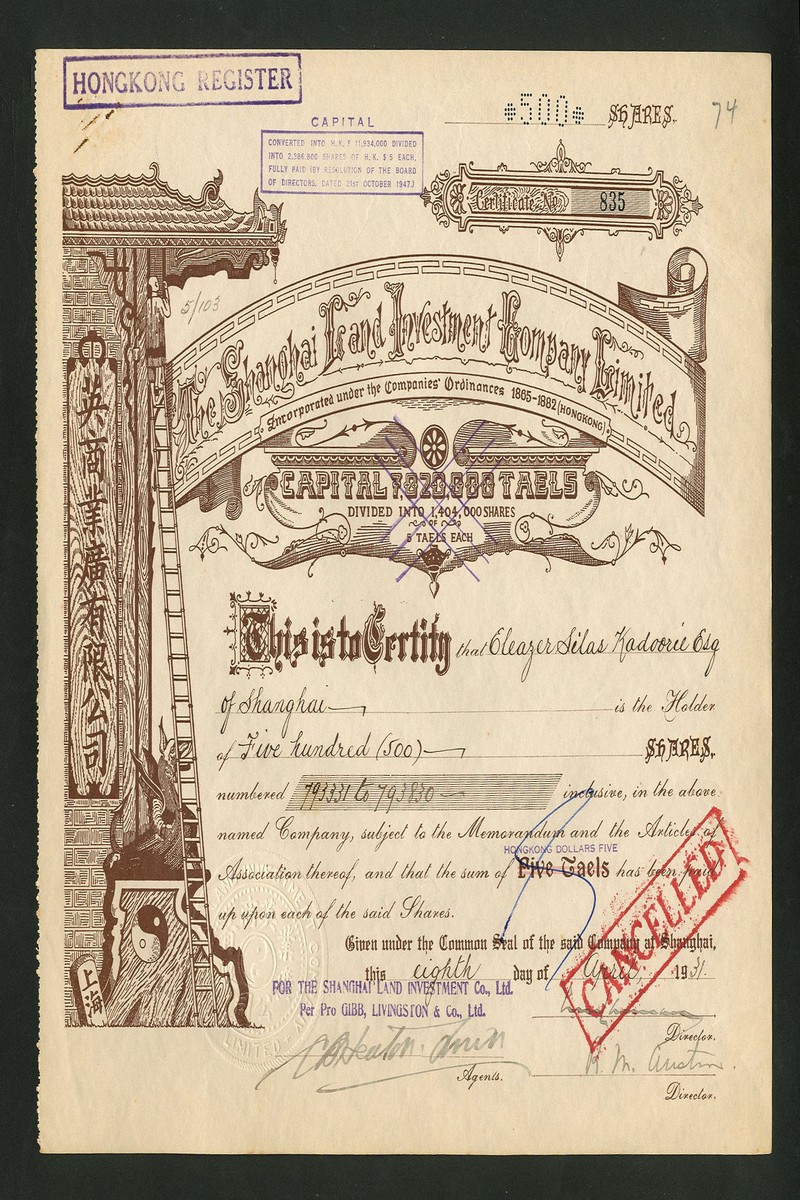 HONGKONG REGISTER
*500* SHARES.
74
CAPITAL
CONVERTED INTO H.K. $ 11,934,000 DIVIDED
INTO 2,386,800 SHARES OF H.K. $ 5 EACH,
FULLY PAID (BY RESOLUTION OF THE BOARD
OF DIRECTORS, DATED 21ST OCTOBER 1947.)
Certificate No 835
5/103
The Shanghai Land Investment Company Limited.
Incorporated under the Companies' Ordinances 1865-1882 (HONGKONG)
CAPITAL 7,020,000 TAELS
DIVIDED INTO 1,404,000 SHARES
OF
5 TAELS EACH
英商業廣有限公司
This is to Certify that Eleazer Silas Kadoorie Esq
of Shanghai is the Holder
of Five hundred (500) SHARES,
numbered 793331 to 793830 inclusive, in the above
named Company, subject to the Memorandum and the Articles of
HONGKONG DOLLARS FIVE
Association thereof, and that the sum of Five Taels has been paid
up upon each of the said Shares.
Given under the Common Seal of the said Company at Shanghai,
this eighth day of April, 1931.
CANCELLED
上海
FOR THE SHANGHAI LAND INVESTMENT Co., Ltd.
Per Pro GIBB, LIVINGSTON & Co., Ltd.
Director.
R. M. Austin.
Agents.
Director.